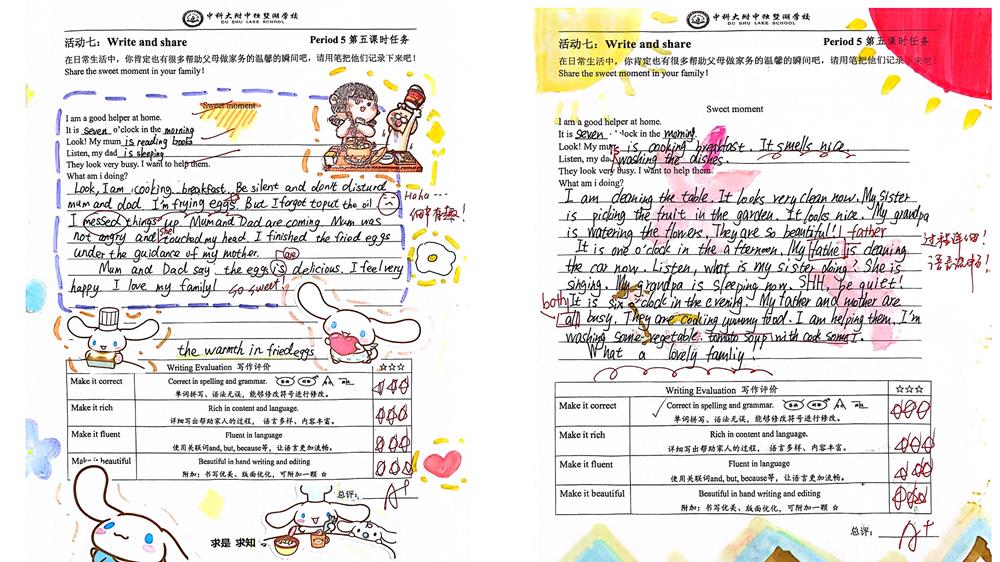 中科大附中独墅湖学校
DU SHU LAKE SCHOOL
活动七：Write and share
Period 5 第五课时任务
在日常生活中，你肯定也有很多帮助父母做家务的温馨的瞬间吧，请用笔把他们记录下来吧！
Share the sweet moment in your family！
Sweet moment
I am a good helper at home.
It is seven o'clock in the morning
Look! My mum is reading books
Listen, my dad is sleeping
They look very busy. I want to help them.
What am i doing?
Look, I am cooking breakfast. Be silent and don't disturd
mum and dad. I'm frying eggs. But I forgot to put the oil
I messed things up. Mum and Dad are coming. Mum was
not angry and she touched my head. I finished the fried eggs
under the guidance of my mother.
Mum and Dad say the eggs is are delicious. I feel very
happy. I love my family! So sweet
Haha
何其有趣！
the warmth in fried eggs
Writing Evaluation 写作评价
☆☆☆
Make it correct
Correct in spelling and grammar.
单词拼写、语法无误，能够修改符号进行修改。
Make it rich
Rich in content and language.
详细写出帮助家人的过程， 语言多样、内容丰富。
Make it fluent
Fluent in language
使用关联词and, but, because等，让语言更加流畅。
Make it beautiful
Beautiful in hand writing and editing
附加：书写优美、版面优化，可附加一颗 ☆
总评： A+
求是 求知
中科大附中独墅湖学校
DU SHU LAKE SCHOOL
活动七：Write and share
Period 5 第五课时任务
在日常生活中，你肯定也有很多帮助父母做家务的温馨的瞬间吧，请用笔把他们记录下来吧！
Share the sweet moment in your family！
Sweet moment
I am a good helper at home.
It is seven o'clock in the morning.
Look! My mum is cooking breakfast. It smells nice.
Listen, my dad is washing the dishes.
They look very busy. I want to help them.
What am i doing?
I am cleaning the table. It looks very clean now. My sister
is picking the fruit in the garden. It looks nice. My grandpa
is watering the flowers. They are so beautiful! father
It is one o'clock in the a fternoon. My fathe is cleaning
the car now. Listen, what is my sister doing? She is
singing. My grandpa is sleeping now. SHH, be quiet!
过程详细！
语言流畅！
both
It is six o'clock in the evening. My father and mother are
all busy. They are cooking yummy food. I am helping them. I'm
washing some vegetable. tomato soup with cook some I.
What a lovely family!
Writing Evaluation 写作评价
☆☆☆
Make it correct
Correct in spelling and grammar.
单词拼写、语法无误，能够修改符号进行修改。
Make it rich
Rich in content and language.
详细写出帮助家人的过程， 语言多样、内容丰富。
Make it fluent
Fluent in language
使用关联词and, but, because等，让语言更加流畅。
Make it beautiful
Beautiful in hand writing and editing
附加：书写优美、版面优化，可附加一颗 ☆
总评： A+